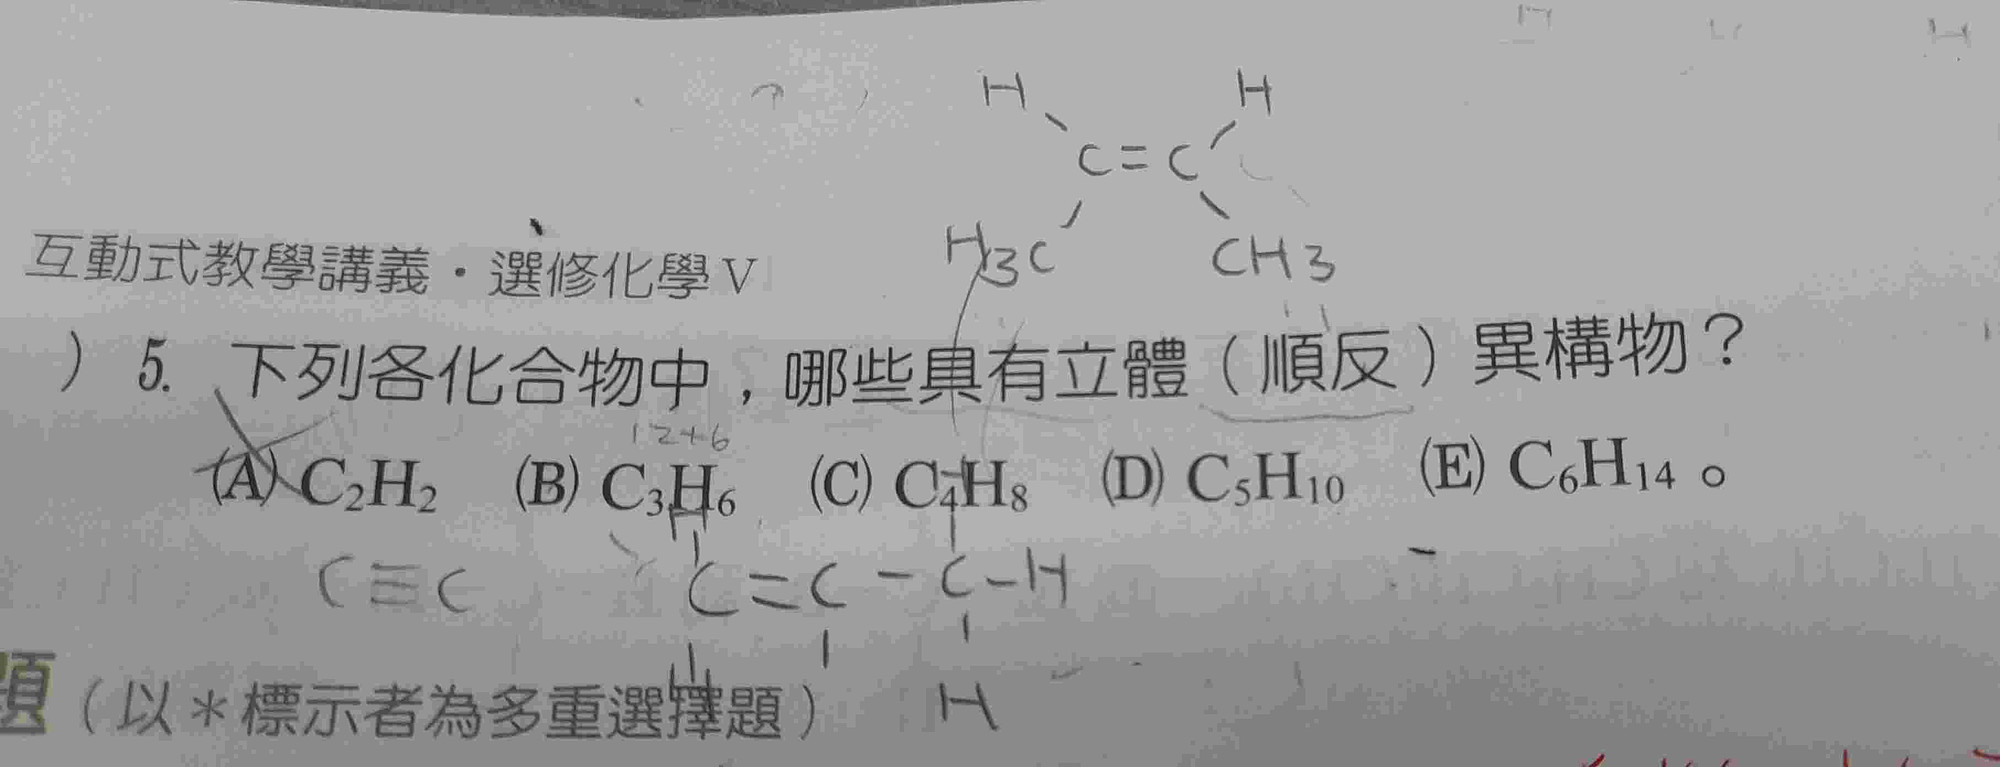 H H
C=C
H3C CH3
互動式教學講義・選修化學 V
) 5. 下列各化合物中，哪些具有立體（順反）異構物？
12+6
(A) C₂H₂ (B) C₃H₆ (C) C₄H₈ (D) C₅H₁₀ (E) C₆H₁₄。
H
C≡C C=C-C-H
H H
題（以＊標示者為多重選擇題）